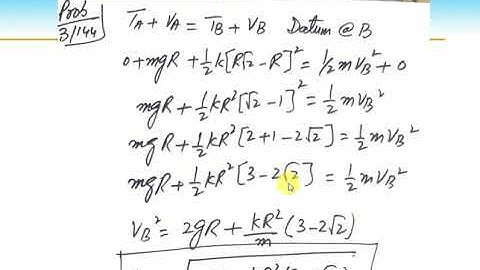 Prob 3/144
T_A + V_A = T_B + V_B Datum @ B
0 + mgR + 1/2 k[R√2 - R]^2 = 1/2 m V_B^2 + 0
mgR + 1/2 kR^2 [√2 - 1]^2 = 1/2 m V_B^2
mgR + 1/2 kR^2 [2 + 1 - 2√2] = 1/2 m V_B^2
mgR + 1/2 kR^2 [3 - 2√2] = 1/2 m V_B^2
V_B^2 = 2gR + kR^2/m (3 - 2√2)